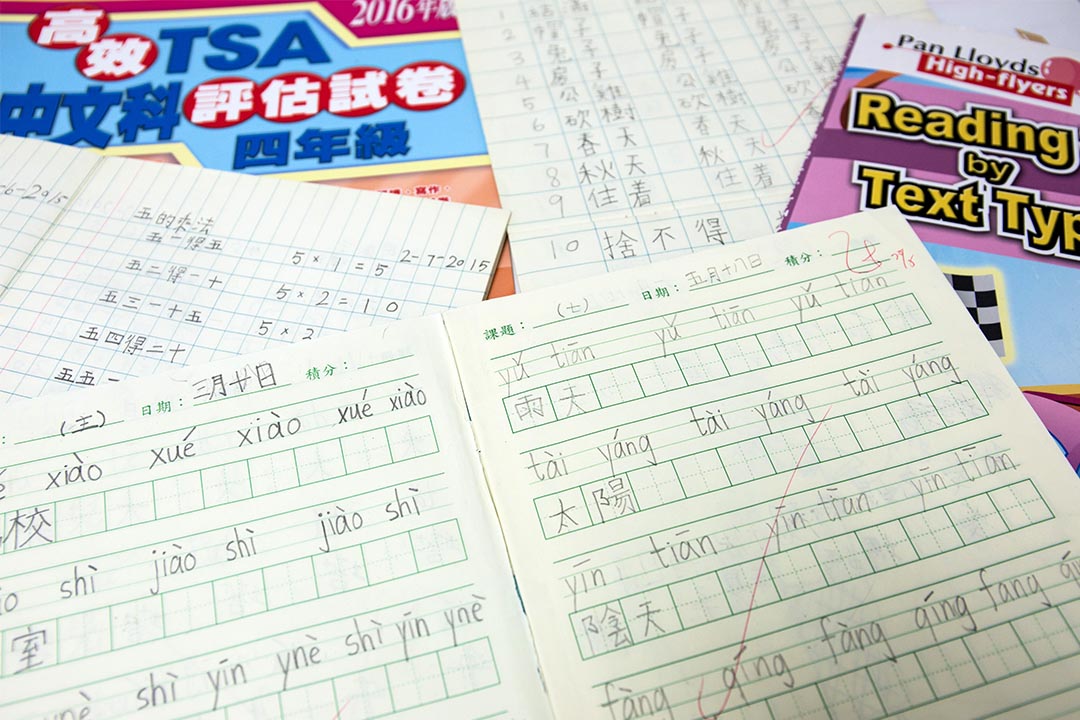 2016年
高效TSA
中文科評估試卷
四年級
Pan Lloyds
High-flyers
Reading
by
Text Typ
6 砍樹 砍樹 砍
7 春天 春天
8 秋天 秋天
9 住着 住着
10 捨不得
-6-2015
五的乘法
2-7-2015
五一得五 5 × 1 = 5
五二得一十 5 × 2 = 10
五三一十五 5 × 3
五四得二十
五五一
日期： 三月廿八日 積分：
xiào xué xiào xué xiào
校
shì jiào shì jiào shì
室
shì yīn yuè shì yīn yuè
課題： (七) 日期： 五月十八日 積分：
yǔ tiān yǔ tiān yǔ tiān
雨天
tài yáng tài yáng tài yáng
太陽
yīn tiān yīn tiān yīn tiān
陰天
fàng qíng fàng qíng fang